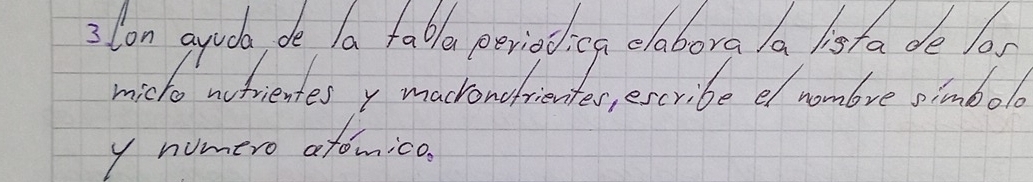 3 Con ayuda de la tabla periódica elabora la lista de los
micro nutrientes y macronutrientes, escribe el nombre símbolo
y numero atómico.